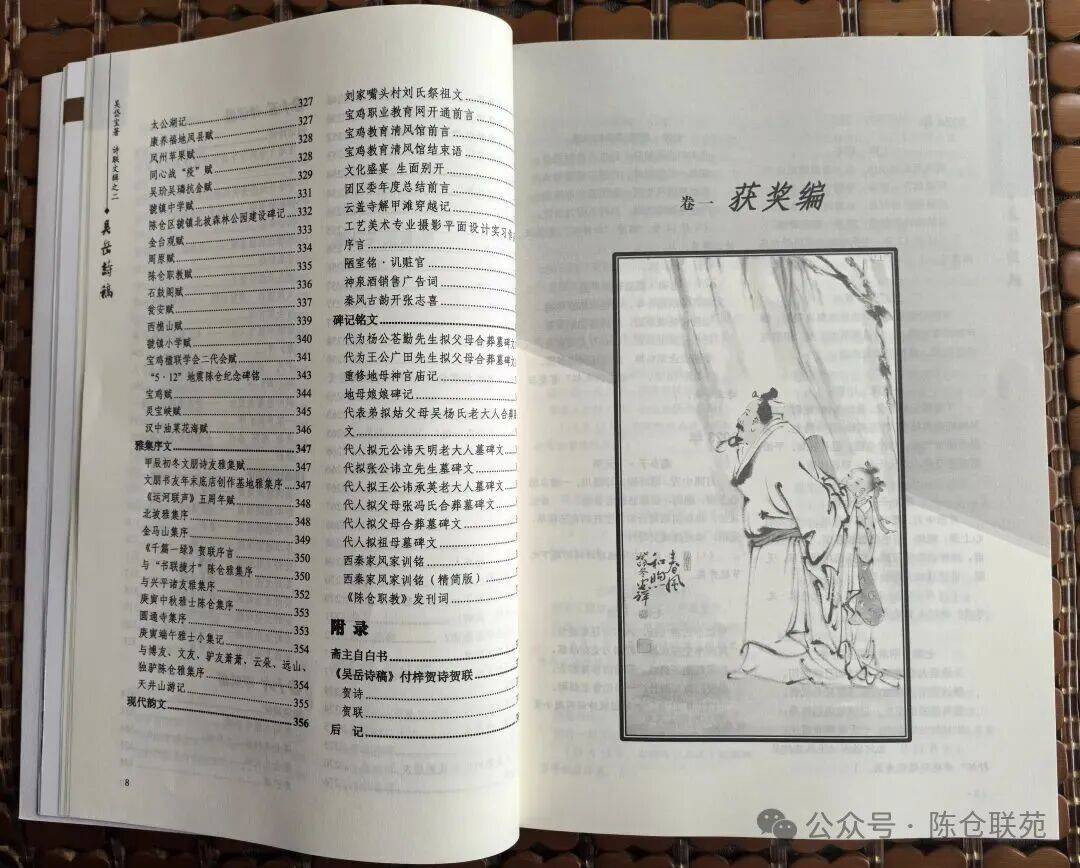 吴岱宝著 诗联文辑之二
◆ 吴岳诗稿
太公湖记……327
康养福地凤县赋……327
凤州苹果赋……328
同心战“疫”赋……328
吴玠吴璘抗金赋……329
虢镇中学赋……331
陈仓区虢镇北坡森林公园建设碑记……332
金台观赋……333
周原赋……334
陈仓职教赋……335
石鼓阁赋……336
瓮安赋……337
西樵山赋……339
虢镇小学赋……340
宝鸡楹联学会二代会赋……341
“5·12”地震陈仓纪念碑铭……343
宝鸡赋……344
灵宝峡赋……345
汉中油菜花海赋……346
雅集序文……347
甲辰初冬文朋诗友雅集赋……347
文朋书友年末底店创作基地雅集序……347
《运河联声》五周年赋……348
北坡雅集序……348
金马山集序……349
《千篇一绿》贺联序言……350
与“书联捷才”陈仓雅集序……350
与兴平诸友雅集序……352
庚寅中秋雅士陈仓集序……353
圆通寺集序……353
庚寅端午雅士小集记……354
与博友、文友、驴友萧萧、云朵、远山、
独驴陈仓雅集序……354
天井山游记……355
现代韵文……356
8
刘家嘴头村刘氏祭祖文
宝鸡职业教育网开通前言
宝鸡教育清风馆前言
宝鸡教育清风馆结束语
文化盛宴 生面别开
团区委年度总结前言
云盖寺解甲滩穿越记
工艺美术专业摄影平面设计实习
序言
陋室铭·讥赃官
神泉酒销售广告词
秦风古韵开张志喜
碑记铭文
代为杨公荟勤先生拟父母合葬墓碑文
代为王公广田先生拟父母合葬墓碑
重修地母神宫庙记
地母娘娘碑记
代表弟拟姑父母吴杨氏老大人合葬
文
代人拟元公讳天明老大人墓碑文
代拟张公讳立先生墓碑文
代人拟王公讳承英老大人墓碑文
代人拟父母张冯氏合葬墓碑文
代人拟父母合葬墓碑文
代人拟祖母墓碑文
西秦家风家训铭
西秦家风家训铭（精简版）
《陈仓职教》发刊词
附录
斋主自白书
《吴岳诗稿》付梓贺诗贺联
贺诗
贺联
后 记
卷一 获奖编
春风
和煦
公众号·陈仓联苑